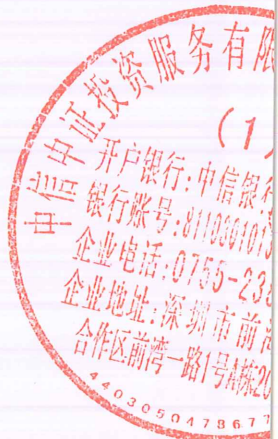 中信中证投资服务有限
(1
开户银行:中信银行
银行账号:811030101
企业电话:0755-23
企业地址:深圳市前
合作区前湾一路1号A栋20
4403050478677